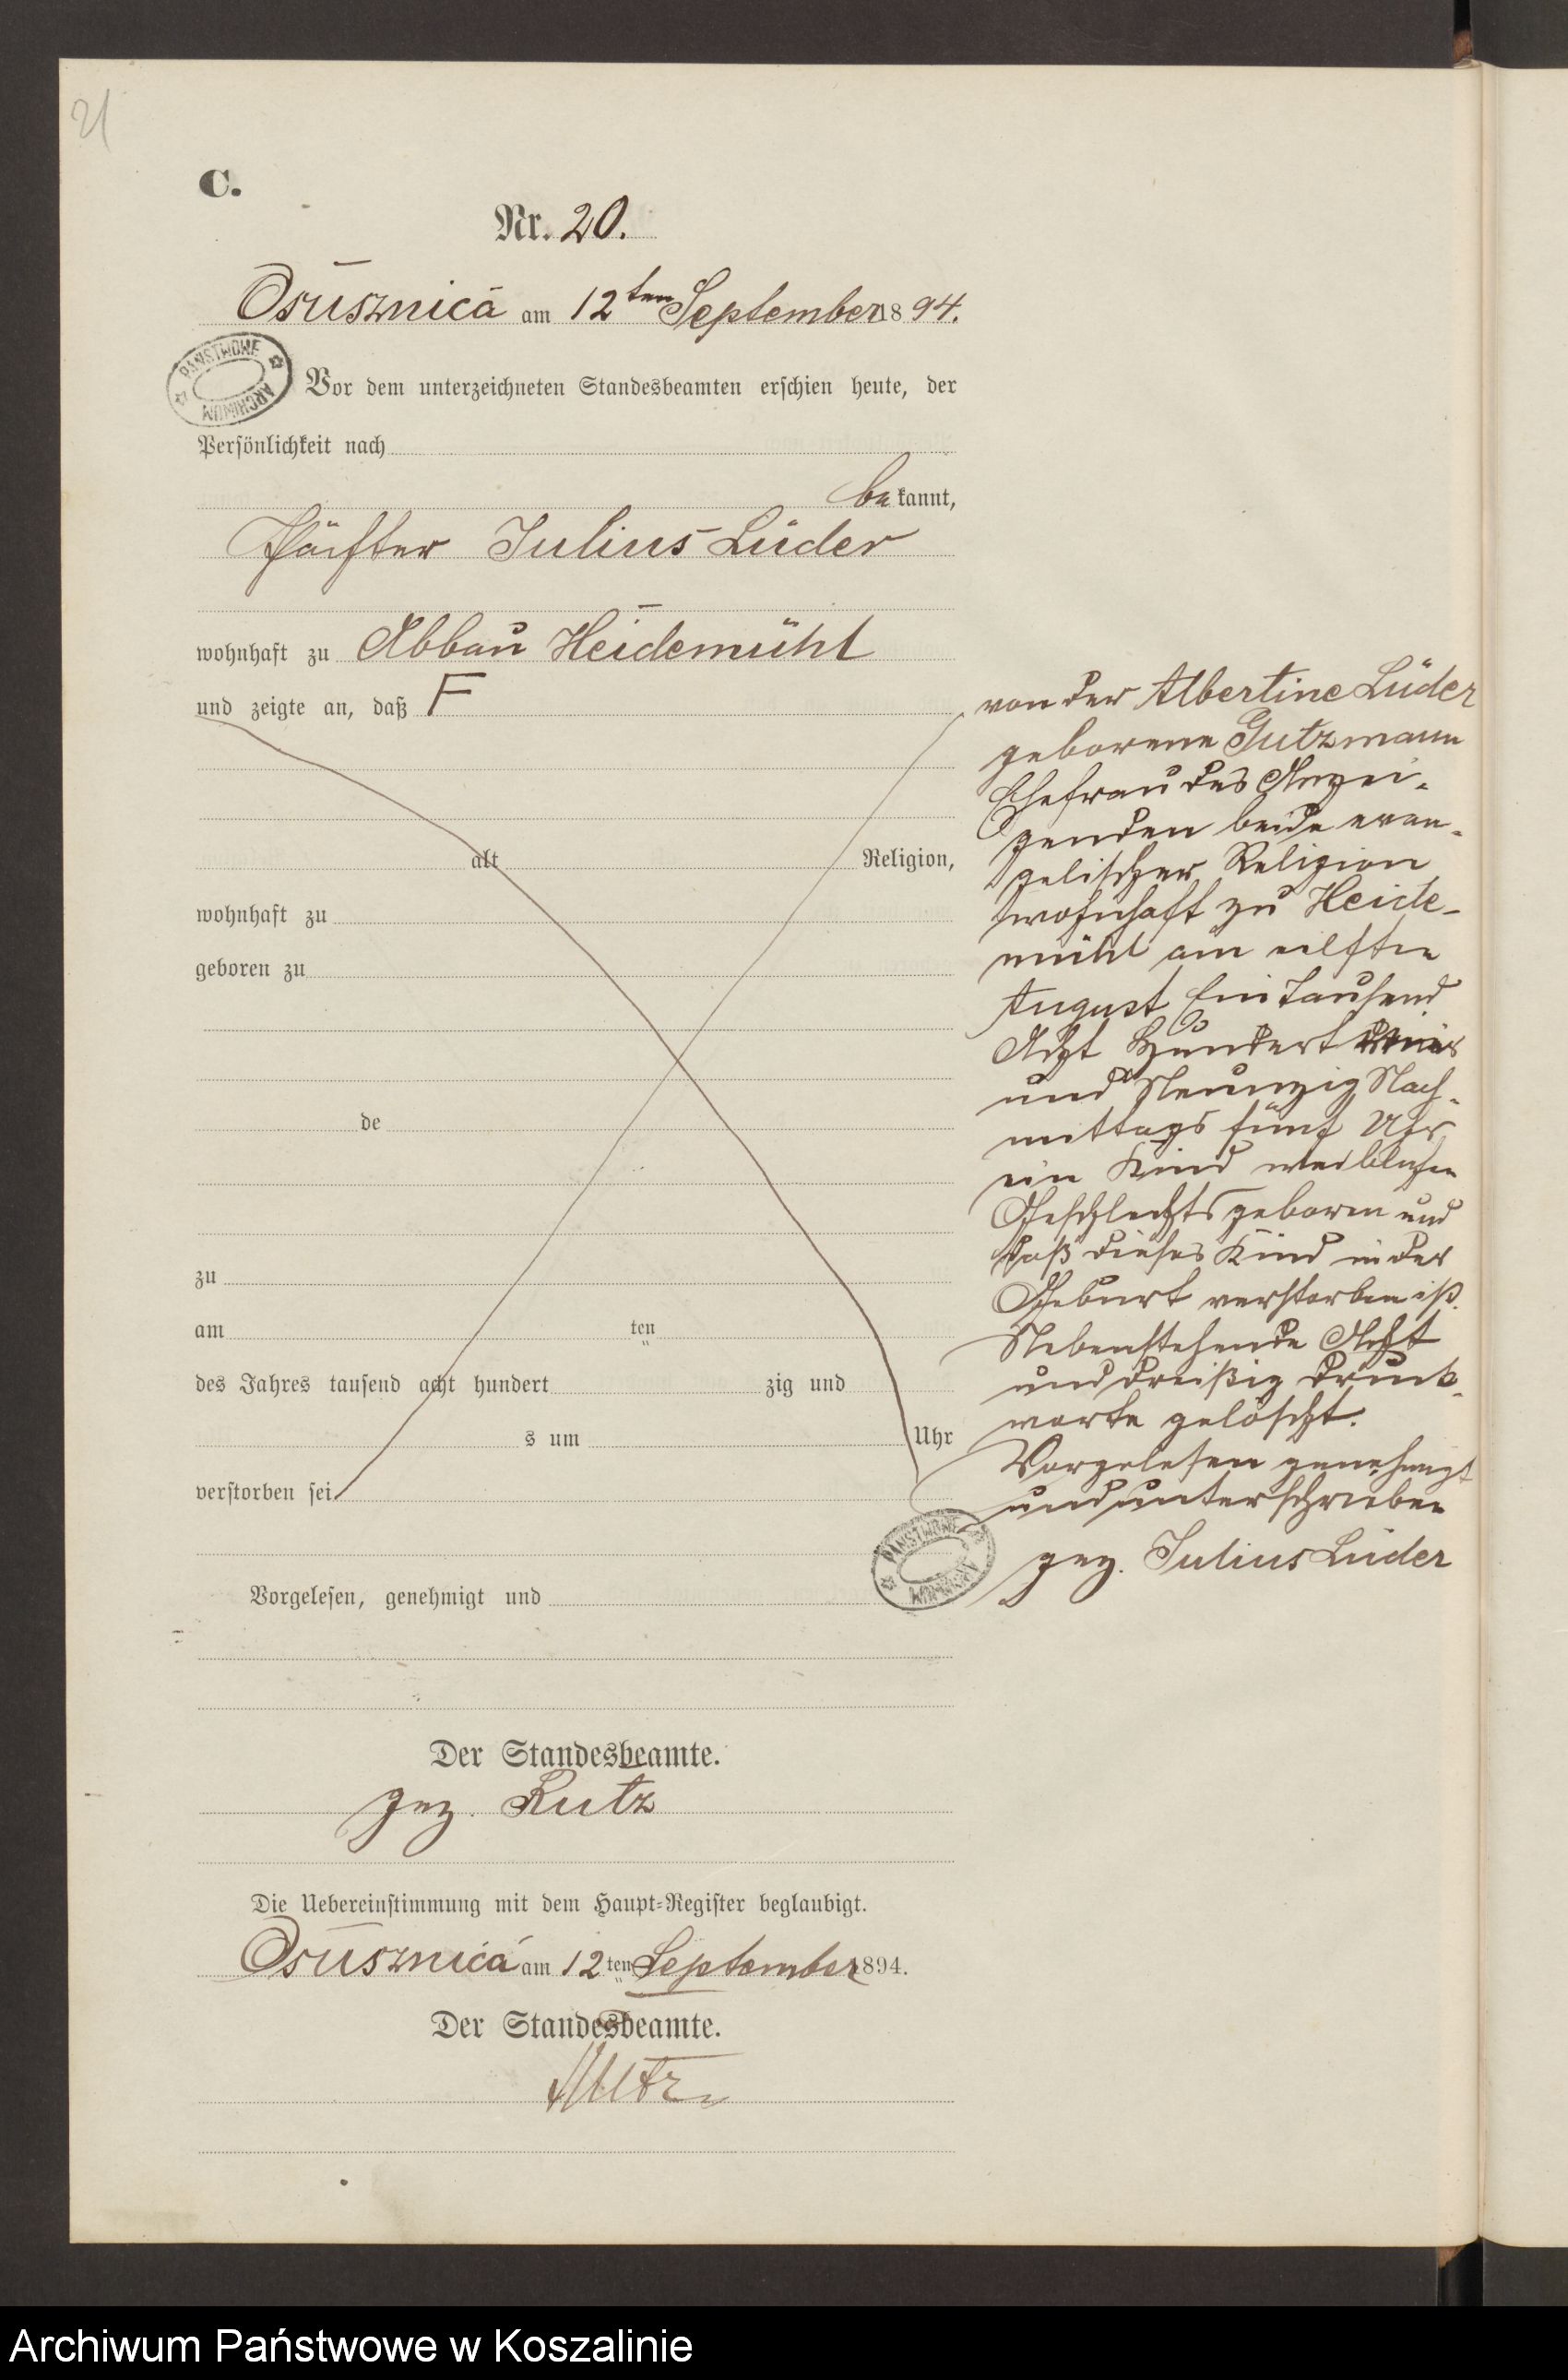 21
C.
Nr. 20.
Osusznica am 12ten September 1894.
PAŃSTWOWE ARCHIWUM
Vor dem unterzeichneten Standesbeamten erschien heute, der
Persönlichkeit nach
be kannt,
Julius Lüder
wohnhaft zu Abbau Heidemühl
und zeigte an, daß F
alt Religion,
wohnhaft zu
geboren zu
de
zu
am ten
des Jahres tausend acht hundert zig und
s um Uhr
verstorben sei
Vorgelesen, genehmigt und
von der Albertine Lüder
geborene Gutzmann
Ehefrau des Anzei-
genden beide evan-
gelischer Religion
wohnhaft zu Heide-
mühl am elften
August Ein Tausend
Acht Hundert
und Neunzig Nach-
mittags fünf Uhr
ein Kind weiblichen
Geschlechts geboren und
daß dieses Kind in der
Geburt verstorben ist.
Nebenstehende Acht
und dreißig Druck-
worte gelöscht.
Vorgelesen genehmigt
und unterschrieben
gez. Julius Lüder
PAŃSTWOWE ARCHIWUM
Der Standesbeamte.
gez. Rutz
Die Uebereinstimmung mit dem Haupt-Register beglaubigt.
Osusznica am 12ten September 1894.
Der Standesbeamte.
Rutz
Archiwum Państwowe w Koszalinie